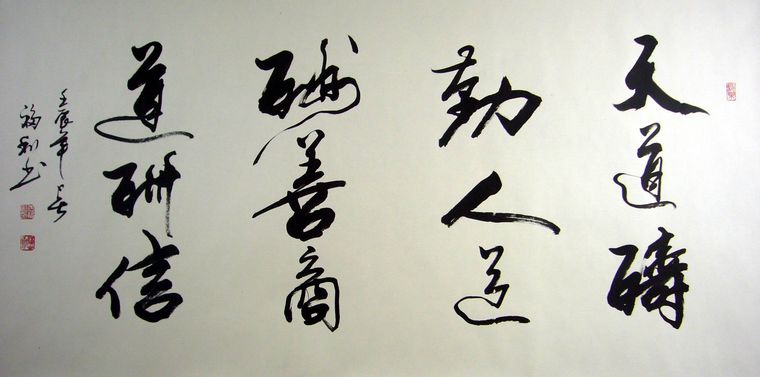 天道酬
勤人道
酬善商
道酬信
壬辰年
福利书